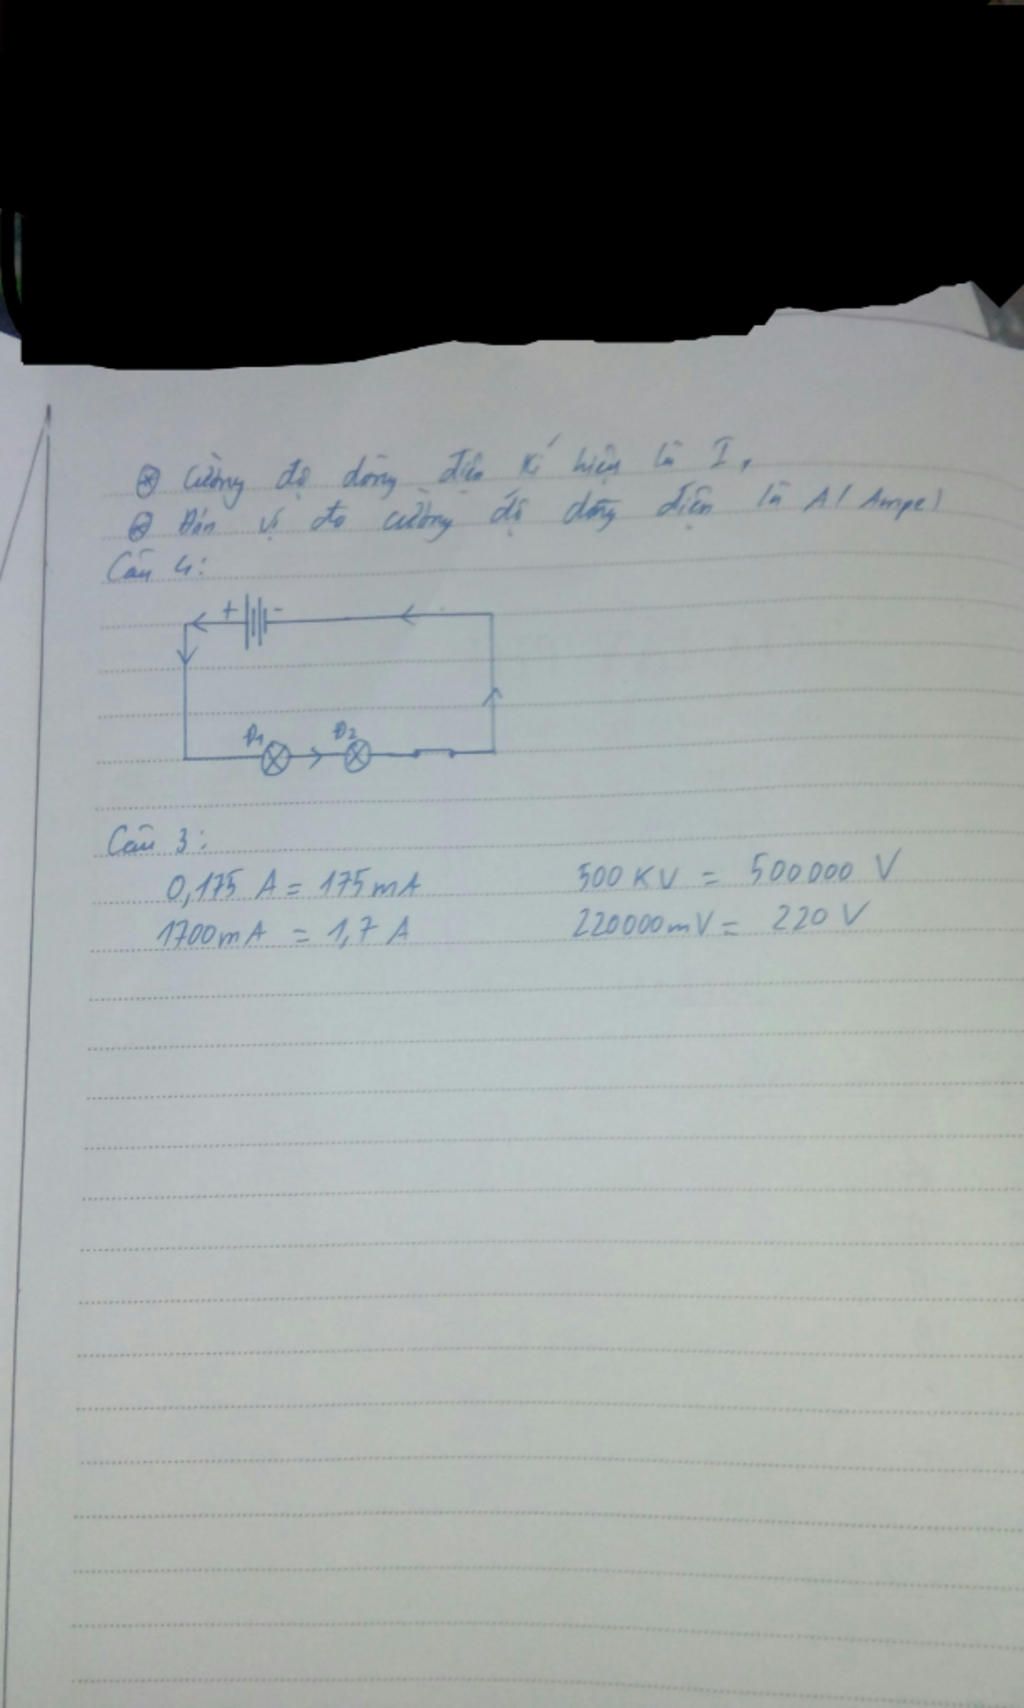 ⊛ Cường độ dòng điện kí hiệu là I,
⊛ Đơn vị đo cường độ dòng điện là A ( Ampe)
Câu 4:
+ -
Đ1 Đ2
Câu 3:
0,175 A = 175 mA 500 KV = 500000 V
1700mA = 1,7 A 220000mV = 220 V